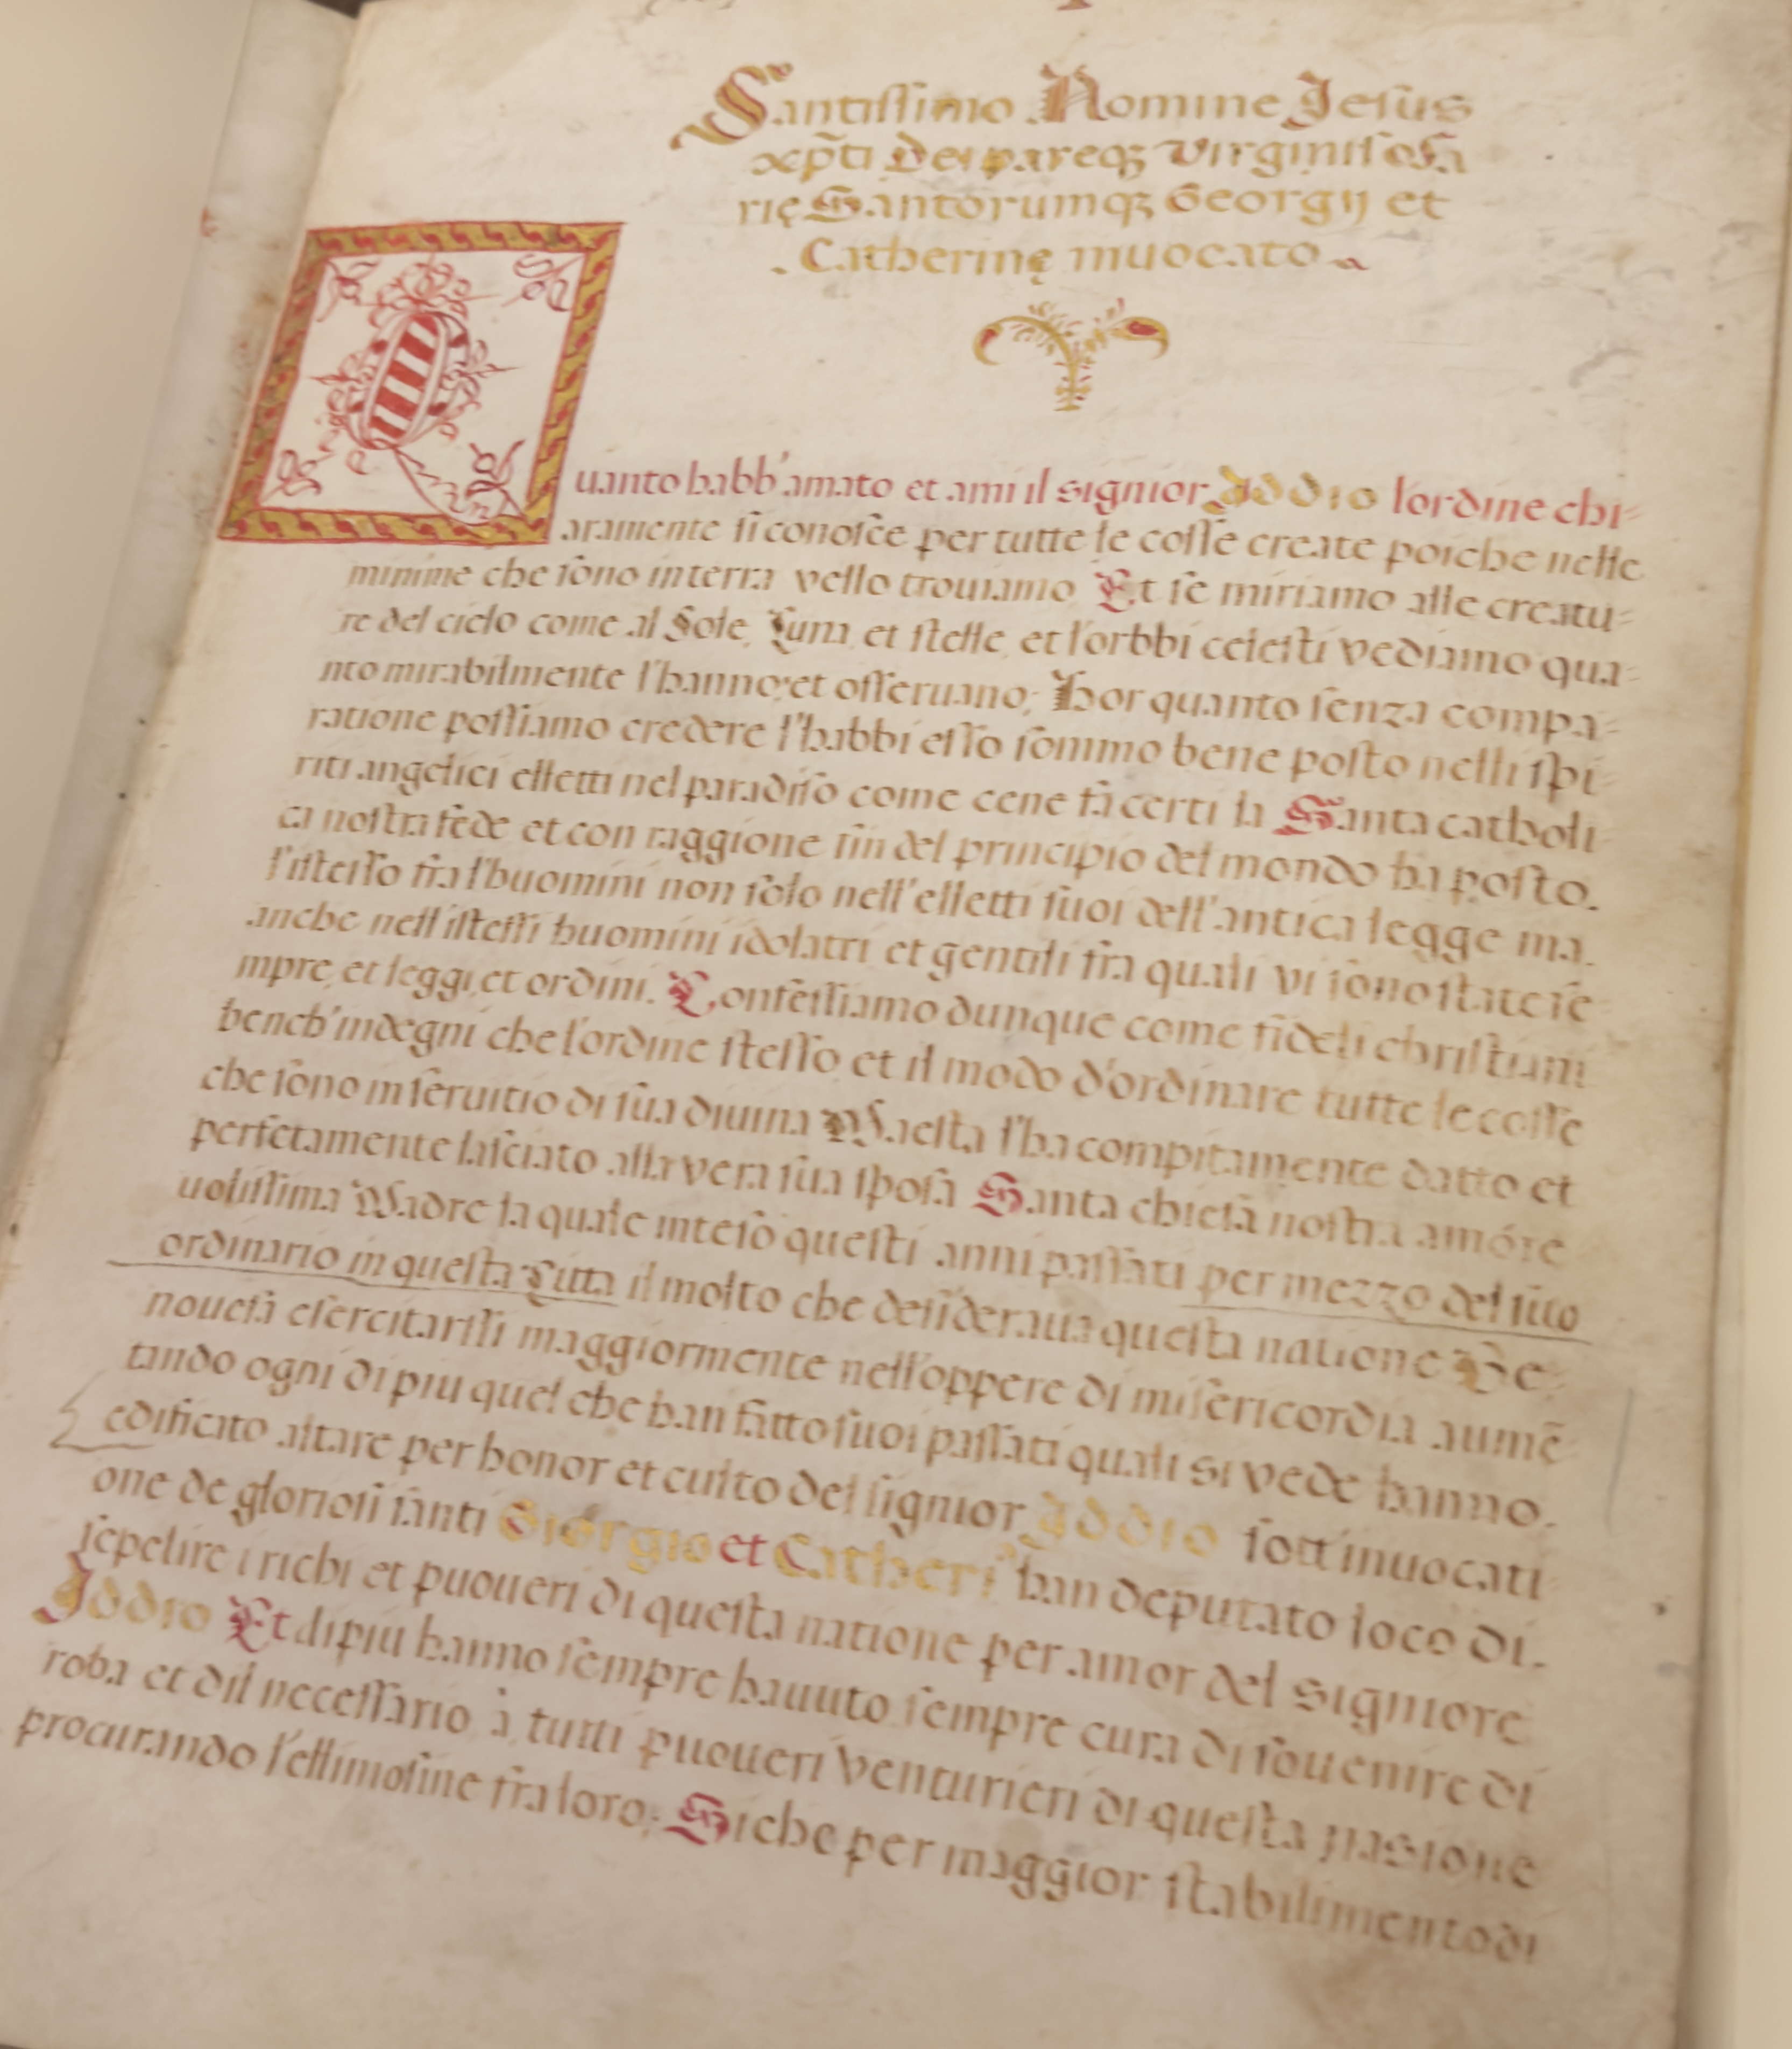 Santissimo Nomine Jesus
xp̃ti Deipareqȝ Virginis Ma
rię Santorumqȝ Georgij et
Catherinę inuocato
Quanto habb'amato et ami il signior Iddio l'ordine chi=
aramente si conosce per tutte le cosse create poiche nelle
minime che sono in terra vello trouiamo Et se miriamo alle creatu=
re del cielo come al Sole, Luna, et stelle, et l'orbbi celesti vediamo qua=
nto mirabilmente l'hanno, et osseruano; Hor quanto senza compa=
ratione possiamo credere l'habbi esso sommo bene posto nelli spi=
riti angelici elletti nel paradiso come cene fà certi la Santa catholi=
ca nostra fede et con raggione sin del principio del mondo ha posto.
l'istesso fra l'huomini non solo nell'elletti suoi dell'antica legge ma.
anche nell'istessi huomini idolatri et gentili fra quali vi sono state se=
mpre, et leggi, et ordini. Confessiamo dunque come fideli christiani
bench'indegni che l'ordine stesso et il modo d'ordinare tutte le cosse
che sono in seruitio di sua diuina Maesta l'ha compitamente datto et
perfetamente lasciato alla vera sua sposa Santa chiesa nostra amóre
uolissima Madre la quale inteso questi anni passati per mezzo del suo
ordinario in questa Citta il molto che desideraua questa natione Ge=
nouesa esercitarssi maggiormente nell'oppere di misericordia aumē=
tando ogni di piu quel che han fatto suoi passati quali si vede hanno.
edificato altare per honor et culto del signior Iddio sott'inuocati=
one de gloriosi santi Giorgio et Catheri.ª han deputato loco di.
sepelire i richi et puoueri di questa natione per amor del signiore
Iddio Et di piu hanno sempre hauuto sempre cura di souenire di
roba et dil necessario à tutti puoueri venturieri di questa nasione
procurando l'ellimosine fra loro; Siche per maggior stabilimento di